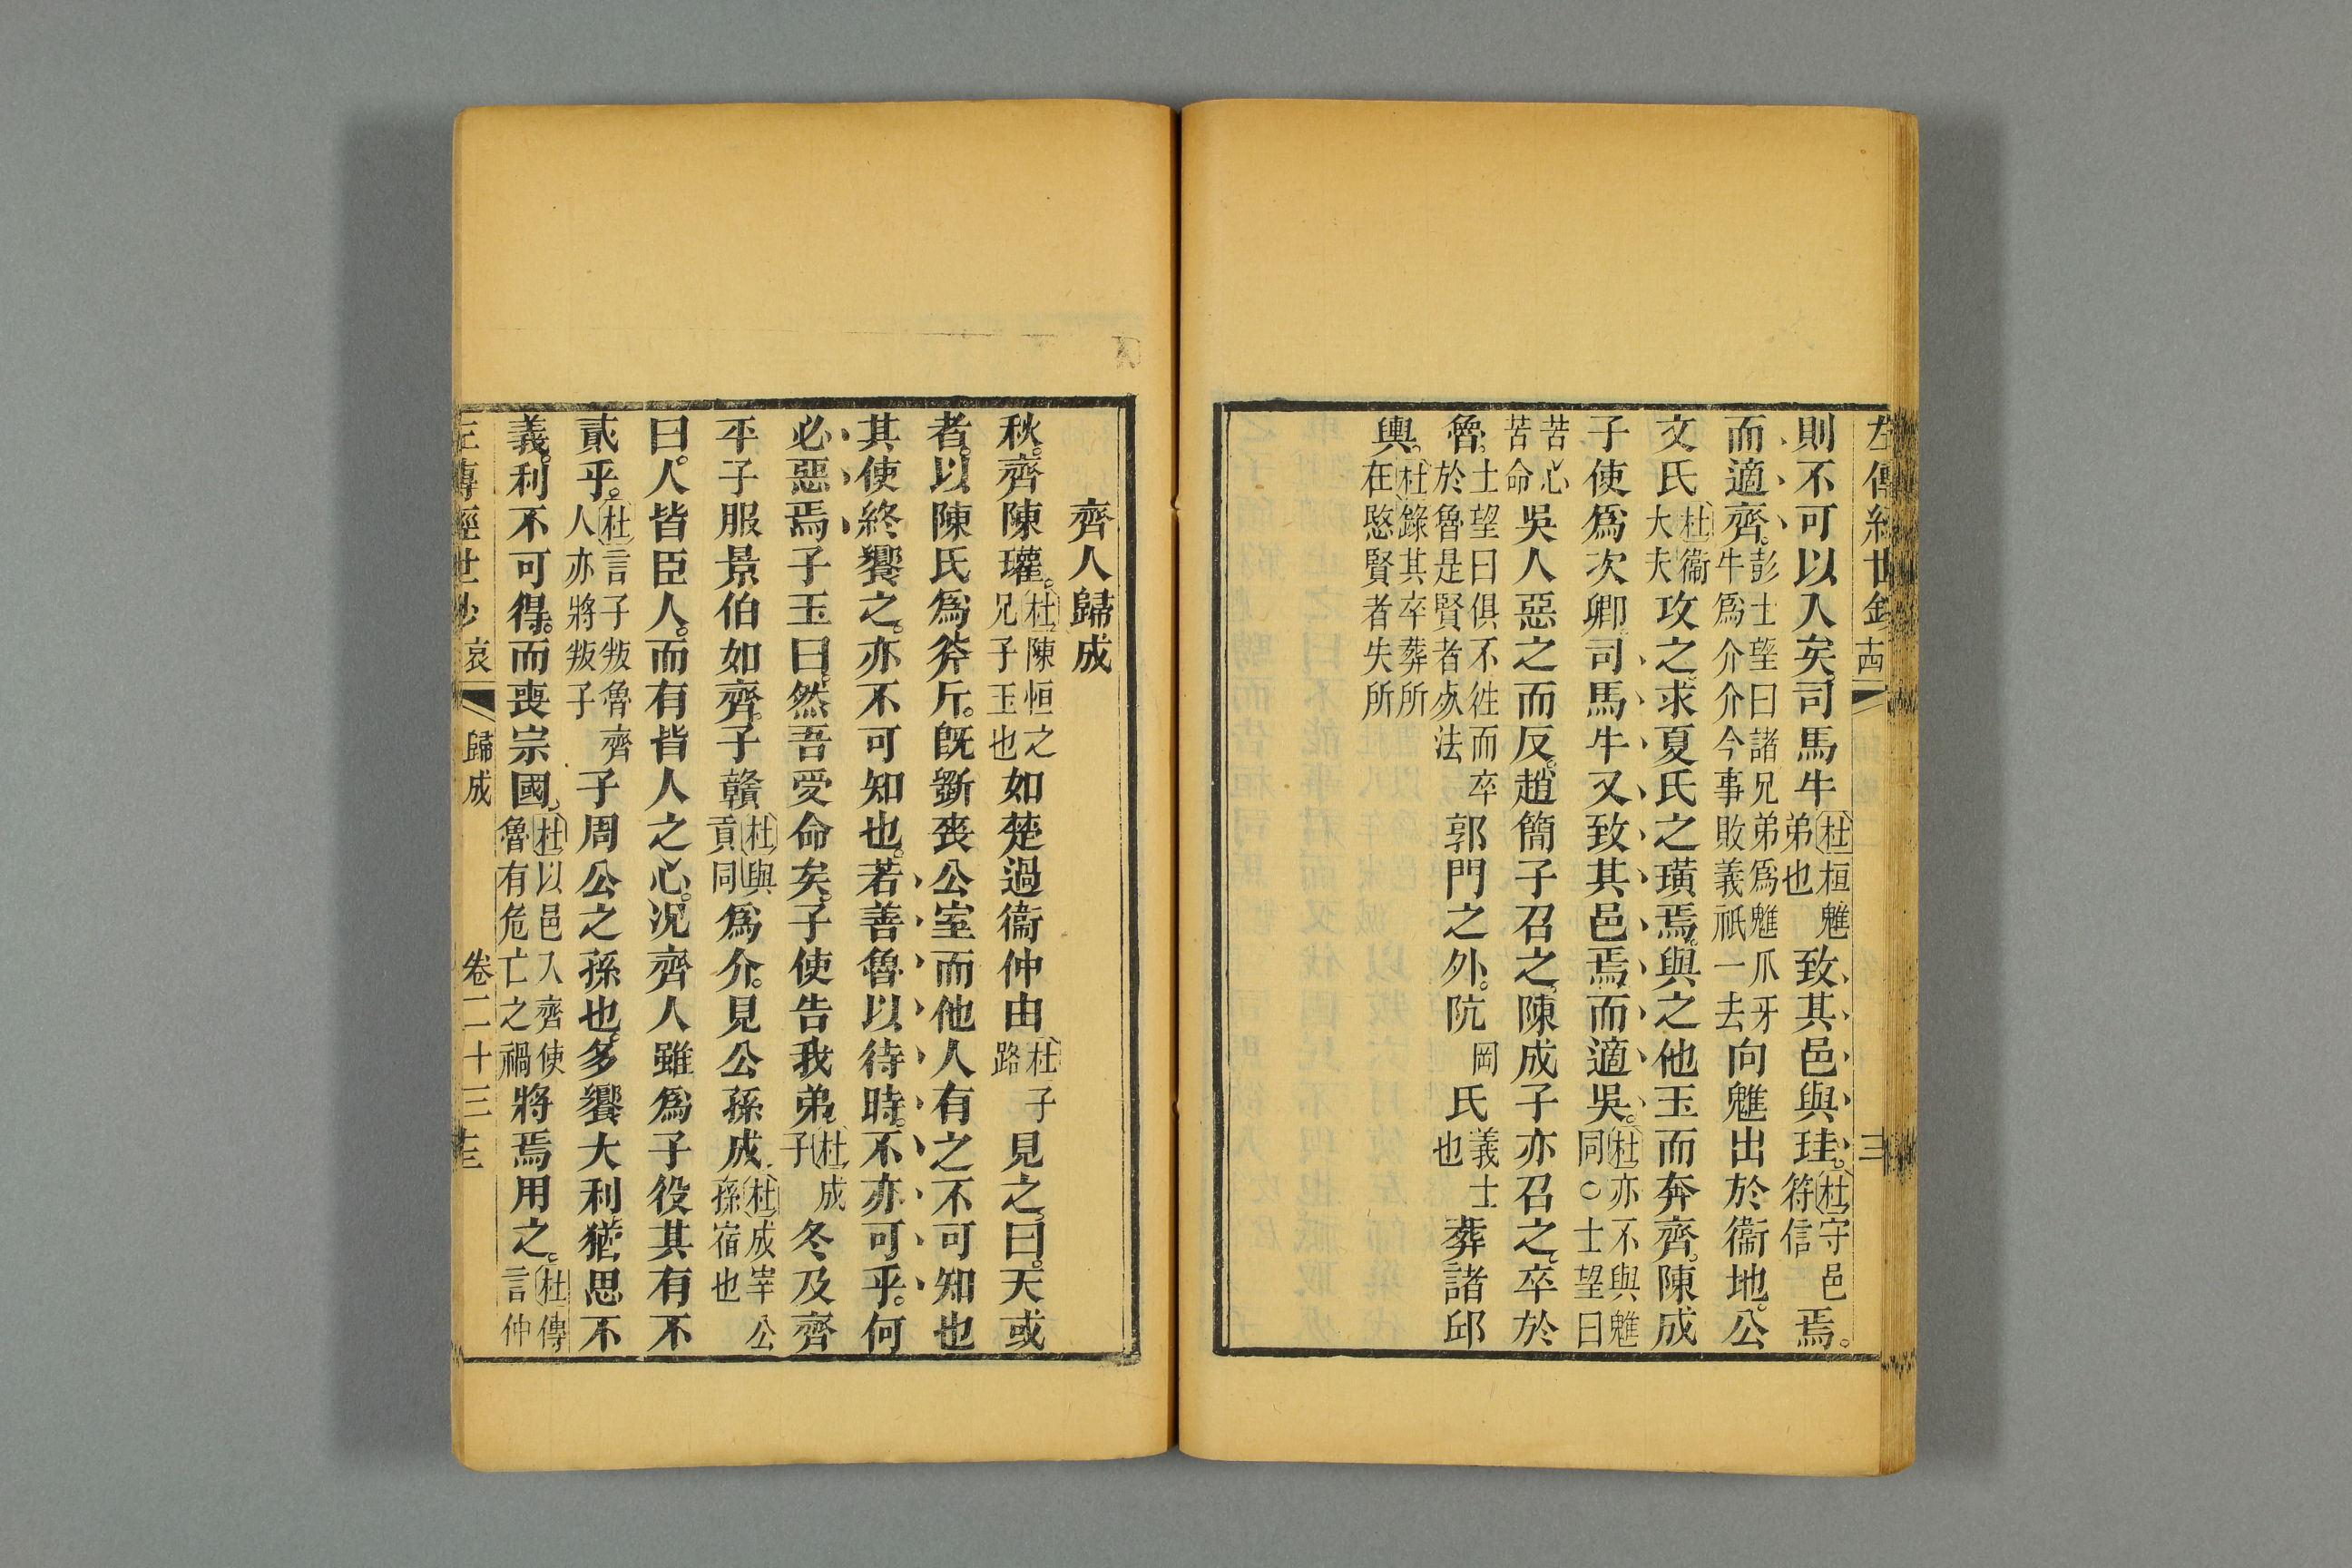 則不可以入矣司馬牛杜桓魋弟也致其邑與珪杜守邑符信焉
而適齊彭士望曰諸兄弟爲魋爪牙牛爲介介今事敗義祇一去向魋出於衞地公
文氏杜衞大夫攻之求夏氏之璜焉與之他玉而奔齊陳成
子使爲次卿司馬牛又致其邑焉而適吳杜亦不與魋同○士望曰
苦心苦命吳人惡之而反趙簡子召之陳成子亦召之卒於
魯士望曰俱不徃而卒於魯是賢者處法郭門之外阬岡氏義士也葬諸邱
輿杜錄其卒葬所在愍賢者失所
齊人歸成
秋齊陳瓘杜陳恒之兄子玉也如楚過衞仲由杜子路見之曰天或
者以陳氏爲斧斤旣斵喪公室而他人有之不可知也
其使終饗之亦不可知也若善魯以待時不亦可乎何
必惡焉子玉曰然吾受命矣子使告我弟杜成子冬及齊
平子服景伯如齊子贛杜與貢同爲介見公孫成杜成宰公孫宿也
曰人皆臣人而有背人之心况齊人雖爲子役其有不
貳乎杜言子叛魯齊人亦將叛子子周公之孫也多饗大利猶思不
義利不可得而喪宗國杜以邑入齊使魯有危亡之禍將焉用之杜傳言仲
歸成
卷二十三